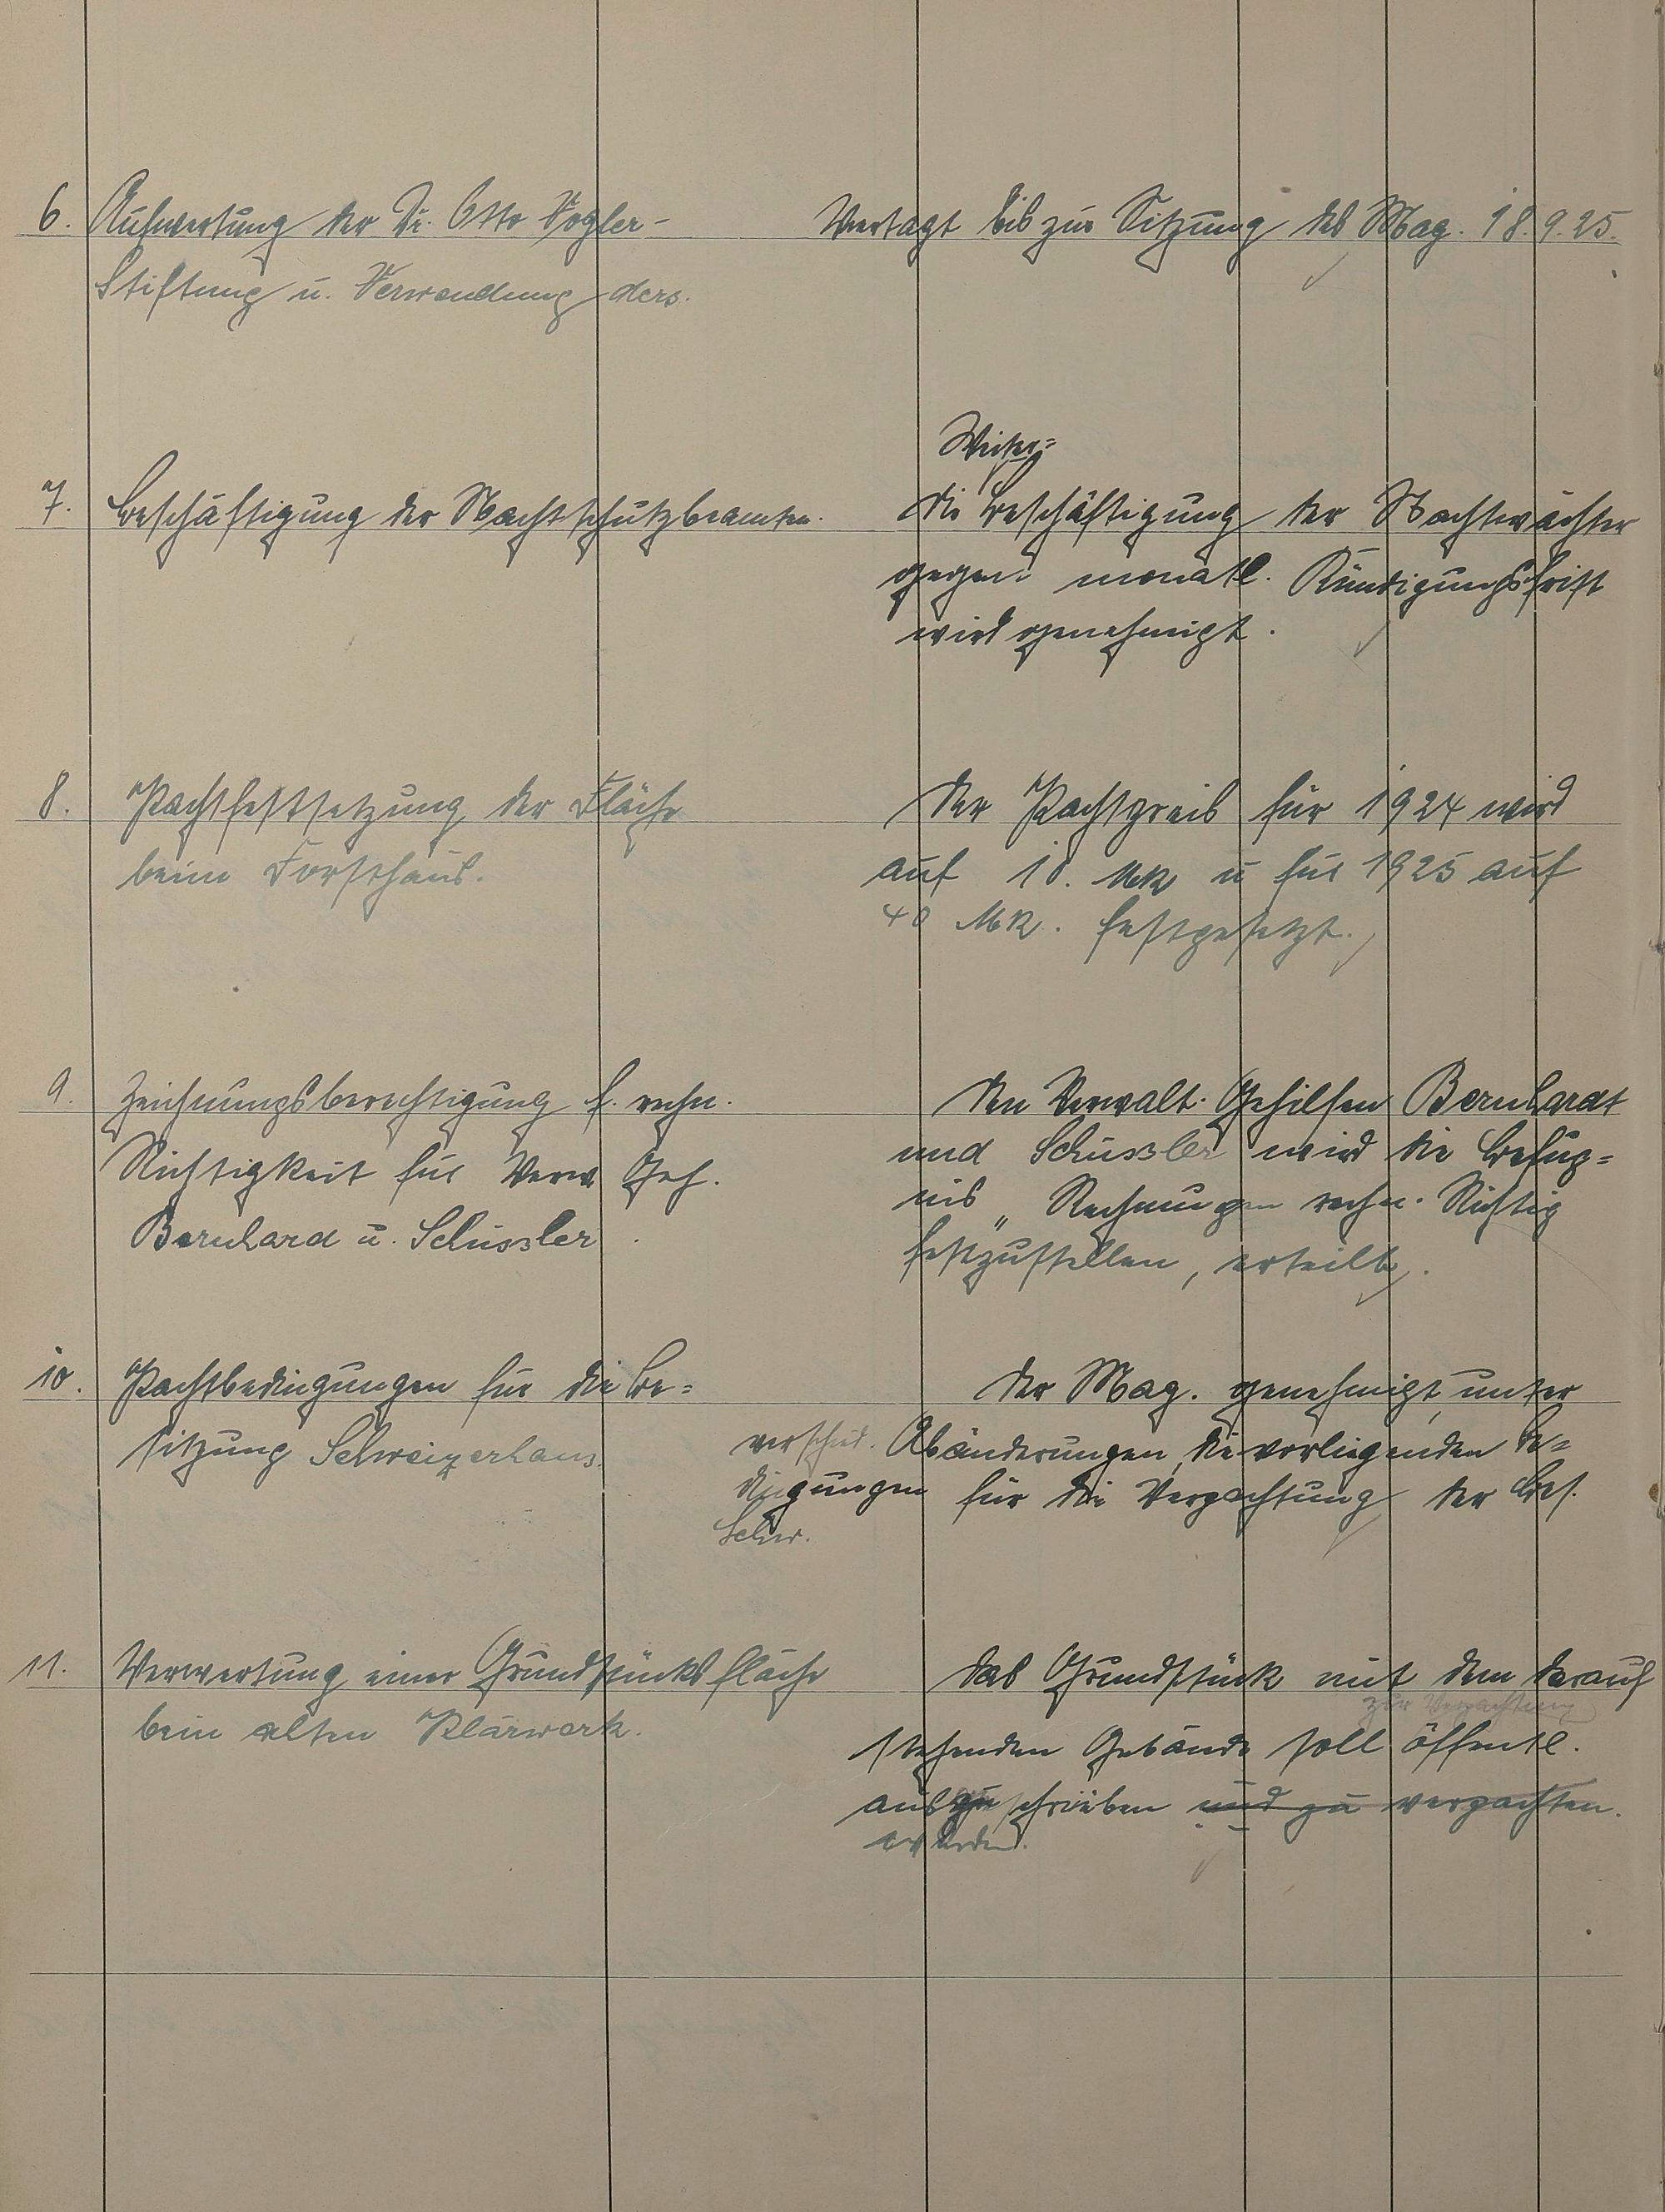 6. Aufwertung der Dr. Otto Vogler-
Stiftung u. Verwendung ders.
Vertagt bis zur Sitzung des Mag. 18.9.25.
7. Beschäftigung der Nachtschutzbeamten.
Weiter=
Die Beschäftigung der Nachtwächter
gegen monatl. Kündigungsfrist
wird genehmigt.
8. Pachtfestsetzung der Fläche
beim Forsthaus.
Der Pachtpreis für 1924 wird
auf 10. Mk u für 1925 auf
40 Mk. festgesetzt.
9. Zeichnungsberechtigung f. rechn.
Richtigkeit für Verw Geh.
Bernhard u. Schüssler.
Den Verwalt. Gehilfen Bernhardt
und Schüssler wird die Befug=
nis „ Rechnungen rechn. Richtig
festzustellen, erteilt.
10. Pachtbedingungen für die Be=
sitzung Schweizerhaus.
Der Mag. genehmigt, unter
verschied. Abänderungen, die vorliegenden Be=
dingungen für die Verpachtung der Bes.
Schw.
11. Verwertung einer Grundstücksfläche
beim alten Klärwerk.
Das Grundstück mit dem darauf
zur Verpachtung
stehenden Gebäude soll öffentl.
ausgeschrieben und zu verpachten.
werden.